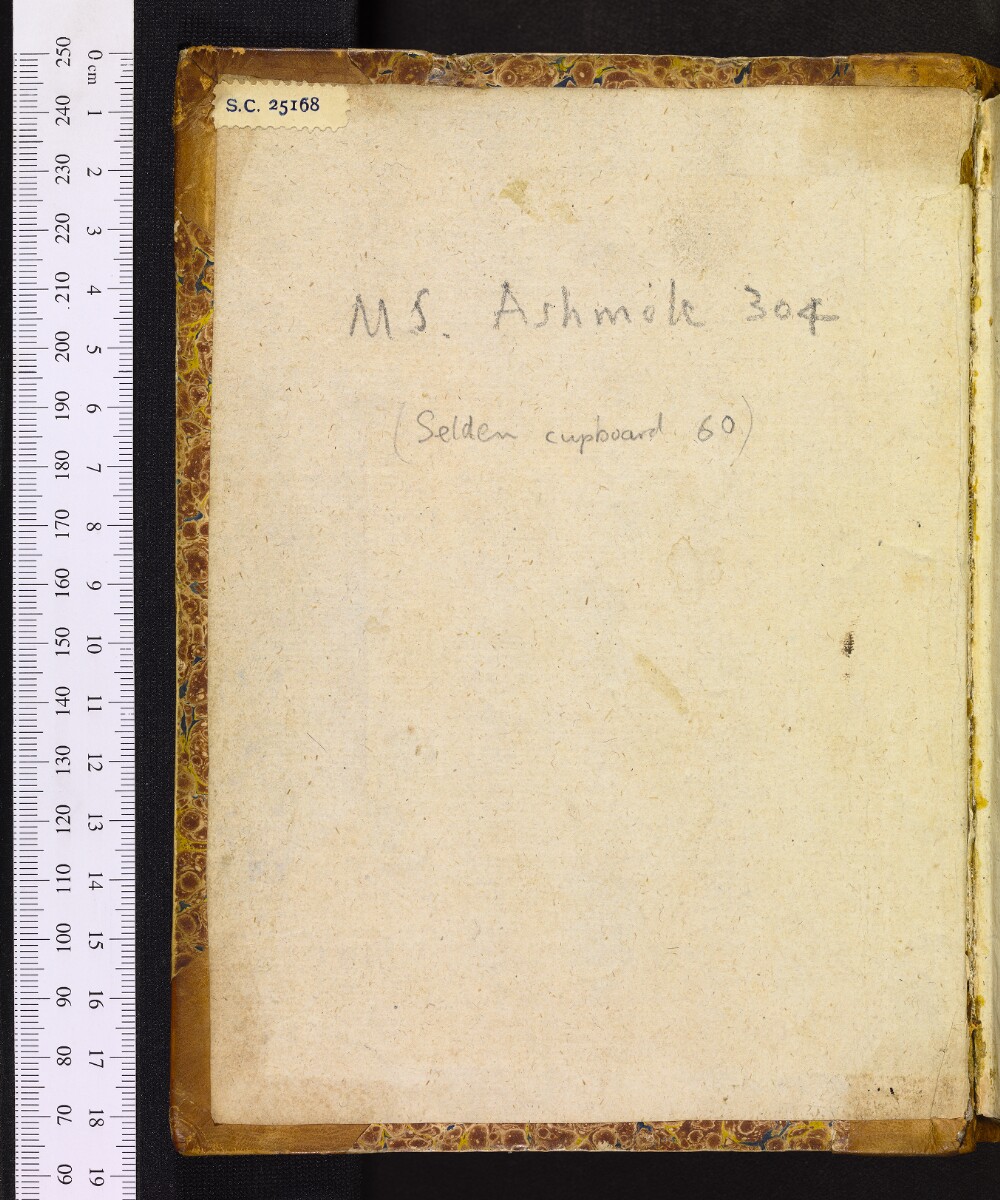 S.C. 25168
MS. Ashmole 304
(Selden cupboard 60)
250 240 230 220 210 200 190 180 170 160 150 140 130 120 110 100 90 80 70 60
0 cm 1 2 3 4 5 6 7 8 9 10 11 12 13 14 15 16 17 18 19